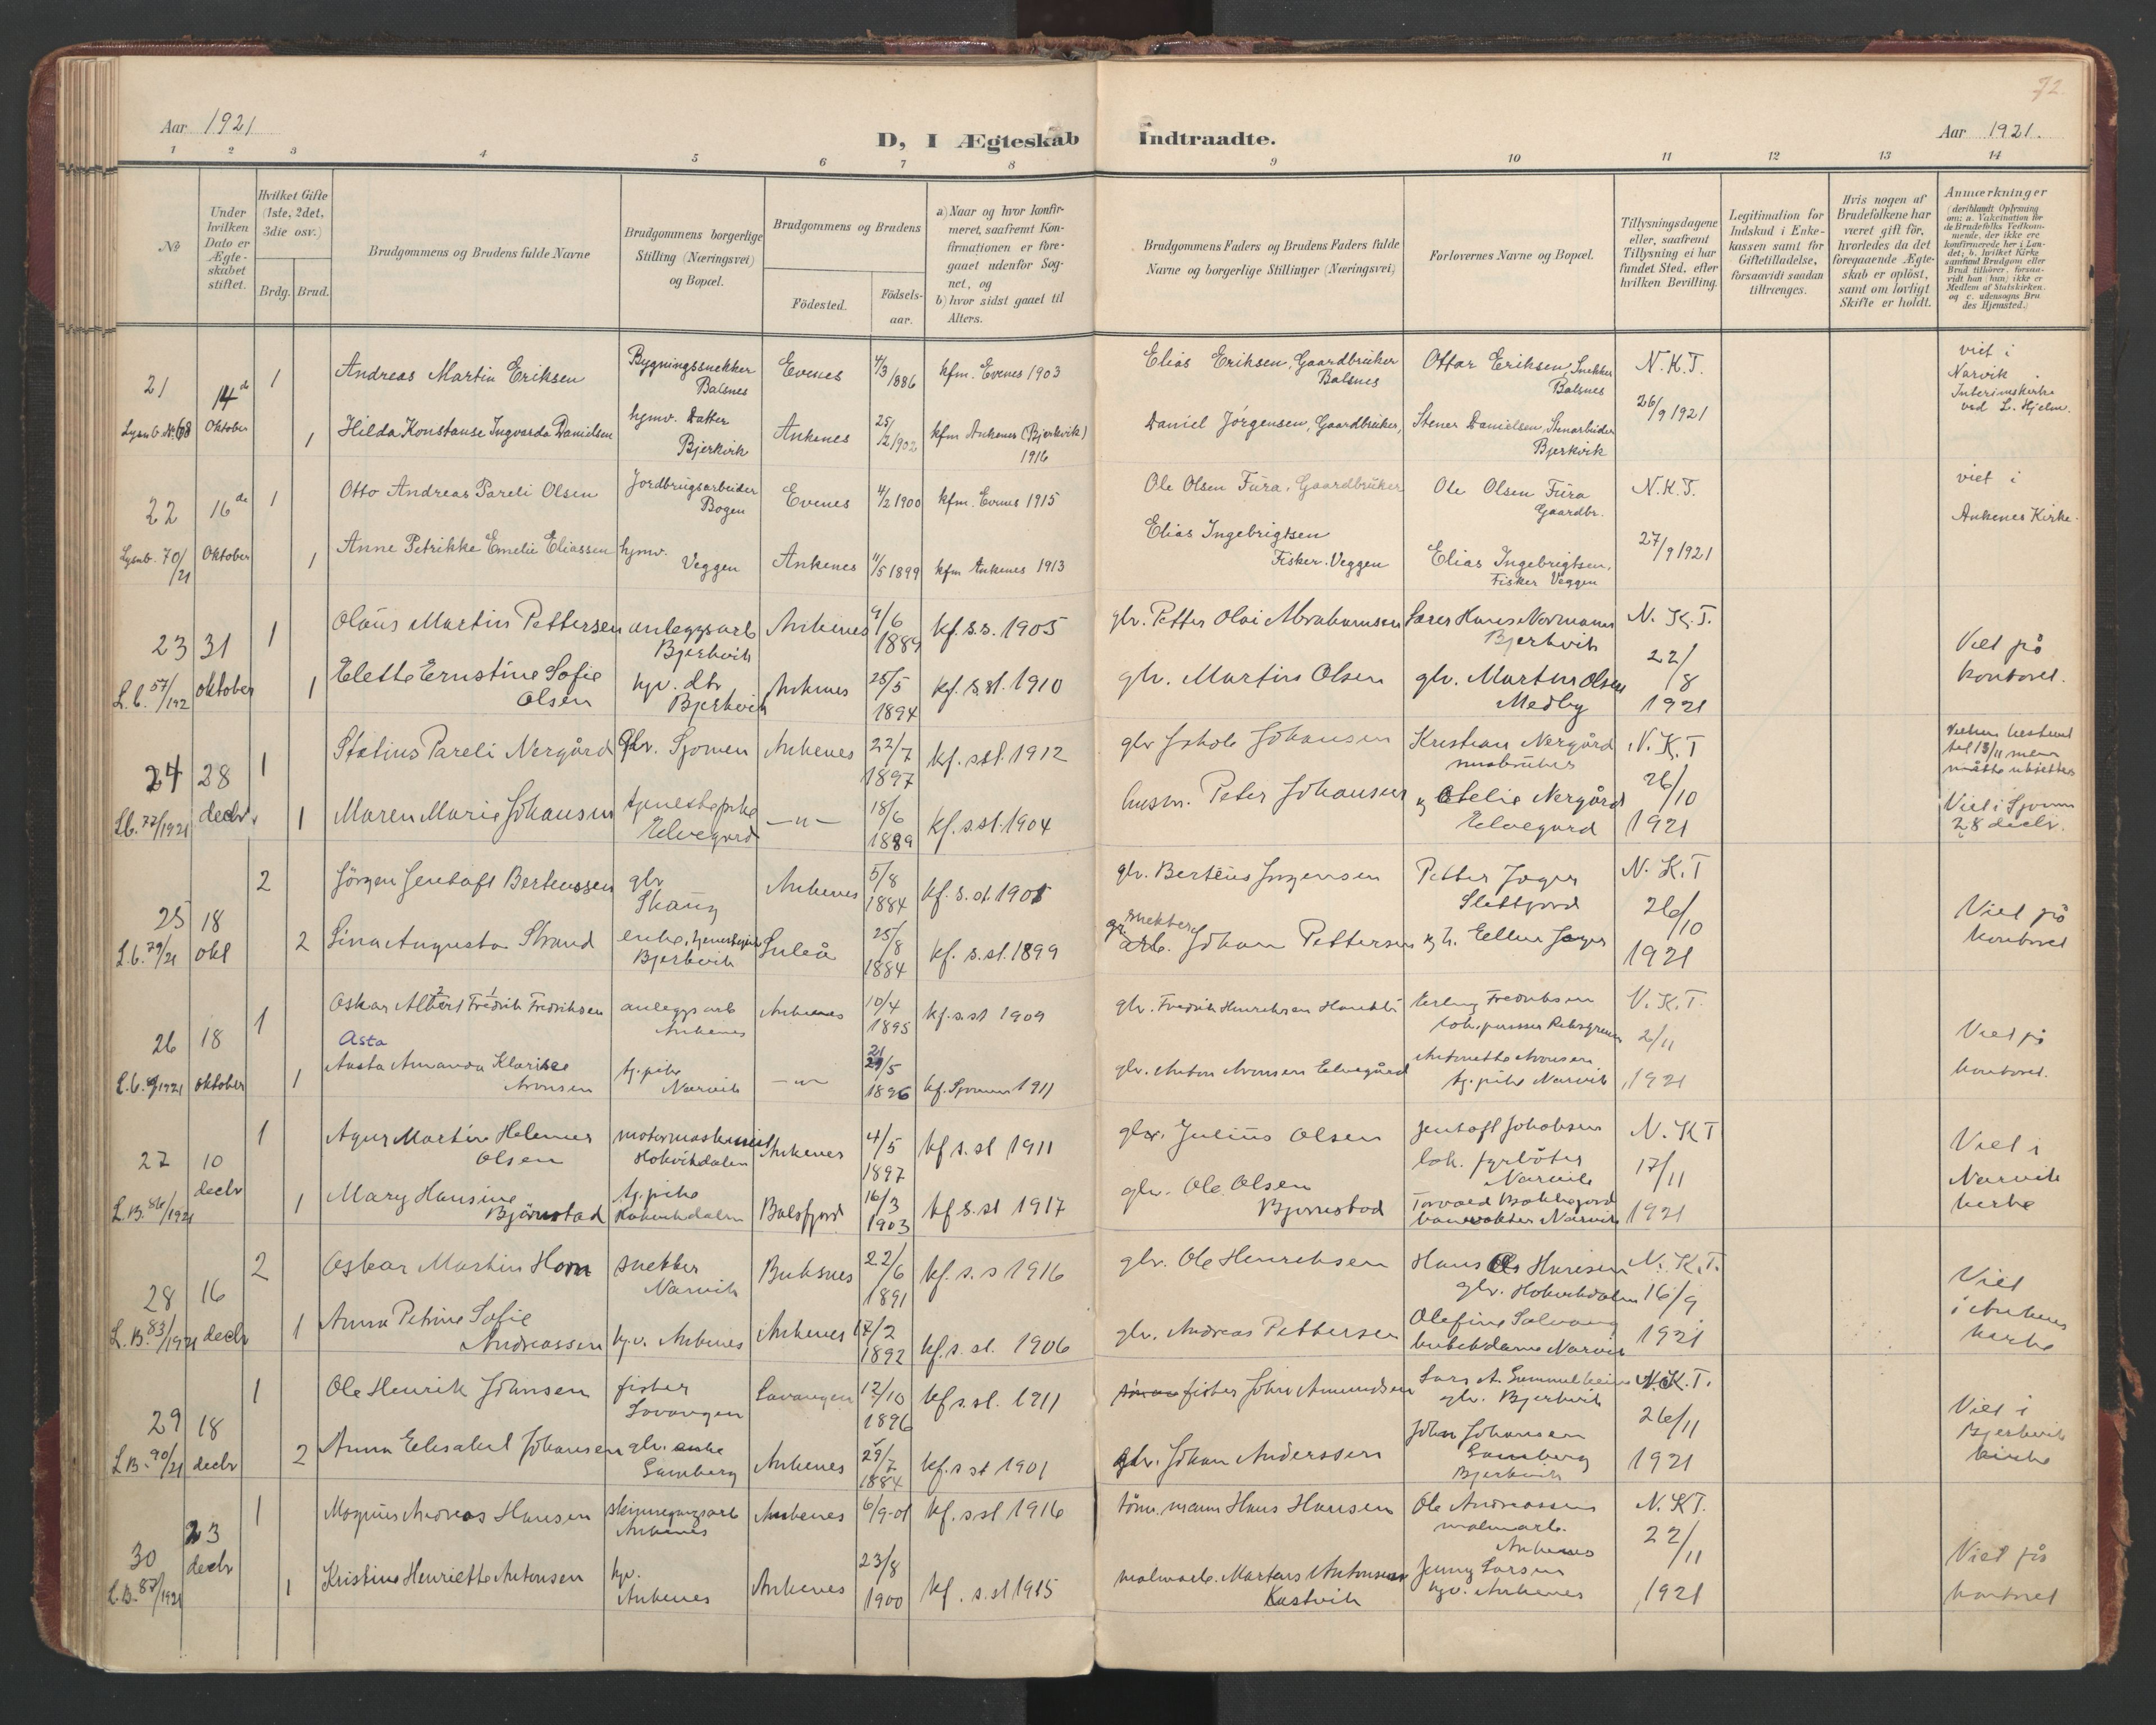 72.
Aar 1921
D, I Ægteskab Indtraadte.
Aar 1921.
1 2 3 4 5 6 7 8 9 10 11 12 13 14
No
Under hvilken Dato er Ægteskabet stiftet.
Hvilket Gifte (1ste, 2det, 3die osv.)
Brdg. Brud.
Brudgommens og Brudens fulde Navne
Brudgommens borgerlige Stilling (Næringsvei) og Bopæl.
Brudgommens og Brudens
Födested.
Födselsaar.
a) Naar og hvor konfirmeret, saafremt Konfirmationen er foregaaet udenfor Sognet, og
b) hvor sidst gaaet til Alters.
Brudgommens Faders og Brudens Faders fulde Navne og borgerlige Stillinger (Næringsvei)
Forlovernes Navne og Bopæl.
Tillysningsdagene eller, saafremt Tillysning ei har fundet Sted, efter hvilken Bevilling.
Legitimation for Indskud i Enkekassen samt for Giftetilladelse, forsaavidt saadan tiltrænges.
Hvis nogen af Brudefolkene har været gift för, hvorledes da det foregaaende Ægteskab er oplöst, samt om lovligt Skifte er holdt.
Anmærkninger
(deriblandt Oplysning om: a. Vakcination for de Brudefolks Vedkommende, der ikke ere konfirmerede her i Landet; b. hvilket Kirkesamfund Brudgom eller Brud tilhörer, forsaavidt han (hun) ikke er Medlem af Statskirken. og c. udensogns Brudes Hjemsted.)
21 14de 1 Andreas Martin Eriksen Bygningssnekker Balsnes Evenes 4/3 1886 kfm. Evenes 1903 Elias Eriksen, Gaardbruker Balsnes Ottar Eriksen, Snekker Balsnes N.K.T. viet i Narvik Interimskirke ved L. Hjelm.
Lysnb. Nr. 68 Oktober 1 Hilda Konstanse Ingvarda Danielsen hjmv. Datter Bjerkvik Ankenes 25/12 1902 kfm Ankenes (Bjerkvik) 1916 Daniel Jörgensen, Gaardbruker, Stener Danielsen, Stenarbeider Bjerkvik 26/9 1921
22 16de 1 Otto Andreas Pareli Olsen Jordbrugsarbeider Bogen Evenes 4/2 1900 kfm. Evenes 1915 Ole Olsen Fura, Gaardbruker Ole Olsen Fura Gaardbr. N.K.T. viet i Ankenes Kirke.
Lysnb. 70/21 Oktober 1 Anne Petrikke Emelie Eliassen hjmv. Veggen Ankenes 11/5 1899 kfm Ankenes 1913 Elias Ingebrigtsen Fisker. Veggen Elias Ingebrigtsen, Fisker Veggen 27/9 1921
23 31 1 Olaus Martin Pettersen anleggsarb Bjerkvik Ankenes 4/6 1889 kf. s.s. 1905 gbr. Petter Olai Abrahamsen Hans Normann Bjerkvik N. K.T. Viet på kontoret.
L.b. 57/192 oktober 1 Elette Ernstine Sofie Olsen hjv. dtr Bjerkvik Ankenes 25/5 1894 kf. s.st. 1910 gbr. Martin Olsen gbr. Martin Olsen Medby 22/8 1921
24 28 1 Statius Pareli Nergård Gbr. Skjomen Ankenes 22/7 1897 kf. s.st. 1912 gbr Jakob Johansen Kristian Nergård småbruker N.K.T Vielsen bestemt til 13/11 men måtte utsettes
Lb. 77/1921 decbr 1 Maren Marie Johansen tjenestepike Elvegård —"— 18/6 1889 kf. s.st. 1904 husm. Peter Johansen og Otelie Nergård Elvegard 26/10 1921 Viet i Skjomen 28 decbr.
25 18 2 Jörgen Jentoft Berteussen gbr Skaug Ankenes 5/8 1884 kf. s.st. 1901 gbr. Berteus Jörgensen Petter Jager Slettjord N.K.T Viet på kontoret
L.b. 79/21 okt 2 Lina Augusta Strand enke, Bjerkvik Luleå 25/8 1884 kf. s.st. 1899 snekker arb. Johan Pettersen og h. Ellen Jager 26/10 1921
26 18 1 Oskar Albert Fredrik Fredriksen anleggsarb Ankenes Ankenes 10/4 1895 kf. s.st 1909 gbr. Fredrik Henriksen Erling Fredriksen lok. pusser N.K.T. 2/11 Viet på kontoret.
L.b. 1921 oktober 1 Asta Aasta Amanda Klarisse Aronsen tj. pike Narvik —"— 21/5 1896 kf. Skjomen 1911 gbr. Anton Aronsen Elvegård Antonette Aronsen tj. pike Narvik 1921
27 10 decbr 1 Agur Martin Helmer Olsen motormaskinist Hokvikdalen Ankenes 4/5 1897 kf s.st 1911 gbr. Julius Olsen Jentoft Jakobsen lok. fyrböter Narvik N.K.T 17/11 Viet i Narvik kirke
L.B. 86/1921 1 Mary Hansine Björnstad tj. pike Hokvikdalen Balsfjord 16/3 1903 kf s.st 1917 gbr. Ole Olsen Bjørnstad Torvald banevokter Narvik 1921
28 16 2 Oskar Martin Horn snekker Narvik Buksnes 22/6 1891 kf. s.s 1916 gbr. Ole Henriksen Hans Ole Hansen gbr. Hokvikdalen N.K.T. 16/9 Viet i Ankenes kirke
L.B. 83/1921 decbr 1 Anna Petrine Sofie Andreassen hjv. Ankenes Ankenes 17/2 1892 kf. s.st. 1906 gbr. Andreas Pettersen Olefine butikdame Narvik 1921
29 18 1 Ole Henrik Johnsen fisker Lavangen Lavangen 12/10 1896 kf s.st. 1911 fisker John Amundsen Lars A. gbr. Bjerkvik N.K.T. Viet i Bjerkvik kirke
L.B. 90/21 decbr 2 Anna Elisabet Johansen gbr. enke Ankenes 29/7 1884 kf. s.st 1901 gbr. Johan Anderssen John Johansen Bjerkvik 26/11 1921
30 23 decbr 1 Magnus Andreas Hansen Ankenes Ankenes 6/9-01 kf. s.st 1916 tömmermann Hans Hansen Ole Andreassen malmarb. Ankenes N.K.T. 22/11 Viet på kontoret
L.B. 87/1921 1 Kristine Henriette Antonsen hjv. Ankenes Ankenes 23/8 1900 kf. s.st 1915 malmarb. Martens Antonsen Jenny Larsen hjv. Ankenes 1921